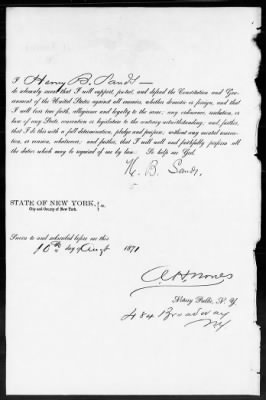 I Henry B. Sands —
do solemnly swear that I will support, protect, and defend the Constitution and Gov-
ernment of the United States against all enemies, whether domestic or foreign, and that
I will bear true faith, allegiance and loyalty to the same, any ordinance, resolution, or
law of any State, convention or legislature to the contrary notwithstanding, and further,
that I do this with a full determination, pledge and purpose, without any mental reserva-
tion, or evasion, whatsoever; and further, that I will well and faithfully perform all
the duties which may be required of me by law. So help me God.
H. B. Sands,
STATE OF NEW YORK, } ss.
City and County of New York.
Sworn to and subscribed before me this
10th day of Augt 1871
Notary Public, N. Y
484 Broadway
NY